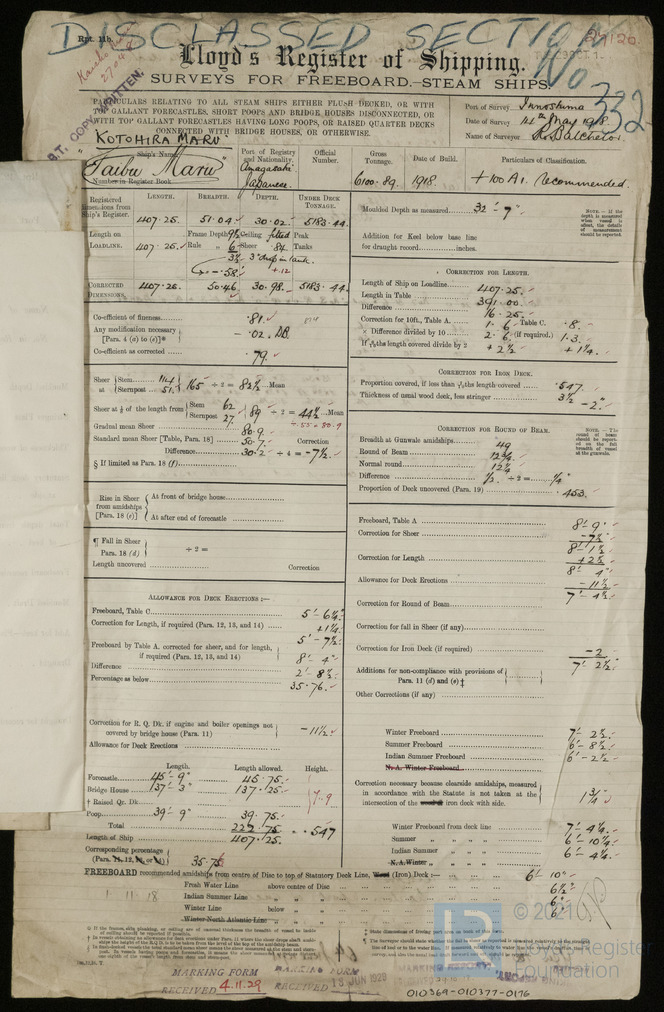 DISCLASSED SECTION
No 332
Rpt. 11b.
Lloyd's Register of Shipping.
SURVEYS FOR FREEBOARD.—STEAM SHIPS.
PARTICULARS RELATING TO ALL STEAM SHIPS EITHER FLUSH DECKED, OR WITH
TOP GALLANT FORECASTLES, SHORT POOPS AND BRIDGE HOUSES DISCONNECTED, OR
WITH TOP GALLANT FORECASTLES HAVING LONG POOPS, OR RAISED QUARTER DECKS
CONNECTED WITH BRIDGE HOUSES, OR OTHERWISE.
Port of Survey Innoshima
Date of Survey 14th May 1918
Name of Surveyor
KOTOHIRA MARU
Ship's Name.
"Taibu Maru"
Number in Register Book
Port of Registry and Nationality.
Amagasaki
Japanese
Official Number.
Gross Tonnage.
6100.89
Date of Build.
1918.
Particulars of Classification.
+100A1. Recommended.
Registered dimensions from Ship's Register.
LENGTH. BREADTH. DEPTH. UNDER DECK TONNAGE.
407.25. 51.04 30.02 5183.44
Length on LOADLINE. 407.25.
Frame Depth Ceiling fitted Peak
Rule Sheer .84 Tanks
CORRECTED DIMENSIONS. 407.25. 50.46 30.98. 5183.44
Co-efficient of fineness .81
Any modification necessary [Para. 4 (a) to (e)]* - .02. DB.
Co-efficient as corrected .79
Sheer at Stem 114 Sternpost 51 165 ÷ 2 = 82½ Mean
Sheer at ⅛ of the length from Stem 62 Sternpost 27 89 ÷ 2 = 44½ Mean
Gradual mean Sheer 80.9
Standard mean Sheer [Table, Para. 18] 50.7 Correction
Difference 30.2 ÷ 4 = -7½
§ If limited as Para. 18 (f)
Rise in Sheer from amidships [Para. 18 (e)]
At front of bridge house
At after end of forecastle
¶ Fall in Sheer Para. 18 (d) ÷ 2 =
Length uncovered Correction
ALLOWANCE FOR DECK ERECTIONS:—
Freeboard, Table C 5'-6¼"
Correction for Length, if required (Para. 12, 13, and 14) +1¼
5'-7½"
Freeboard by Table A. corrected for sheer, and for length, if required (Para. 12, 13, and 14) 8'-4"
Difference 2'-8½
Percentage as below 35.76.
Correction for R. Q. Dk. if engine and boiler openings not covered by bridge house (Para. 11) -11½
Allowance for Deck Erections
Length. Length allowed. Height.
Forecastle 45'-9" 45.75
Bridge House 137'-3" 137.25 7.9
† Raised Qr. Dk.
Poop 39'-9" 39.75
Total 222.75 = .547
Length of Ship 407.25
Corresponding percentage 35.76
Moulded Depth as measured 32'-7"
Addition for Keel below base line
for draught record inches.
CORRECTION FOR LENGTH.
Length of Ship on Loadline 407.25
Length in Table 391.00
Difference 16.25
Correction for 10ft., Table A. 1.6 Table C. .8
× Difference divided by 10 2.6 (if required.) 1.3
If ths length covered divide by 2 +2½ +1¼
CORRECTION FOR IRON DECK.
Proportion covered, if less than ths length covered .547
Thickness of usual wood deck, less stringer 3½ -2"
CORRECTION FOR ROUND OF BEAM.
Breadth at Gunwale amidships 49
Round of Beam 12¾
Normal round 12¼
Difference ½ ÷ 2 = ¼"
Proportion of Deck uncovered (Para. 19) .453
Freeboard, Table A 8'-9"
Correction for Sheer -7½
8'-1½
Correction for Length +2½
8'-4"
Allowance for Deck Erections -11½
7'-4½
Correction for Round of Beam
Correction for fall in Sheer (if any)
Correction for Iron Deck (if required) -2
7'-2½
Additions for non-compliance with provisions of Para. 11 (d) and (e) ‡
Other Corrections (if any)
Winter Freeboard 7'-2½
Summer Freeboard 6'-8½
Indian Summer Freeboard 6'-2½
N. A. Winter Freeboard
Correction necessary because clearside amidships, measured
in accordance with the Statute is not taken at the
intersection of the iron deck with side. 1¾
Winter Freeboard from deck line 7'-4¼
Summer " " " " 6'-10¼
Indian Summer " " " " 6'-4¼
N. A. Winter " " " "
FREEBOARD recommended amidships from centre of Disc to top of Statutory Deck Line, Wood (Iron) Deck:— 6'-10"
Fresh Water Line above centre of Disc 6½
Indian Summer Line " " 6"
Winter Line below " 6"
Winter North Atlantic Line " "
1.11.18
MARKING FORM
RECEIVED 4.11.29
MARKING FORM
RECEIVED 13 JUN 1929
© 2021
Lloyd's Register
Foundation
010369-010377-0176